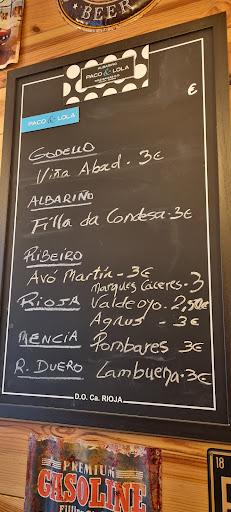 BEER
ALBARIÑO
PACO & LOLA
PACO & LOLA
€
GODELLO
Viña Abad - 3€
ALBARIÑO
Filla da Condesa - 3€
RIBEIRO
Avó Martín - 3€
Marques Cáceres - 3
RIOJA Valdeoyo - 2,50€
Agnus - 3€
MENCIA Pombares 3€
R. DUERO Lambuena - 3€
D.O. Ca. RIOJA
PREMIUM
GASOLINE
18